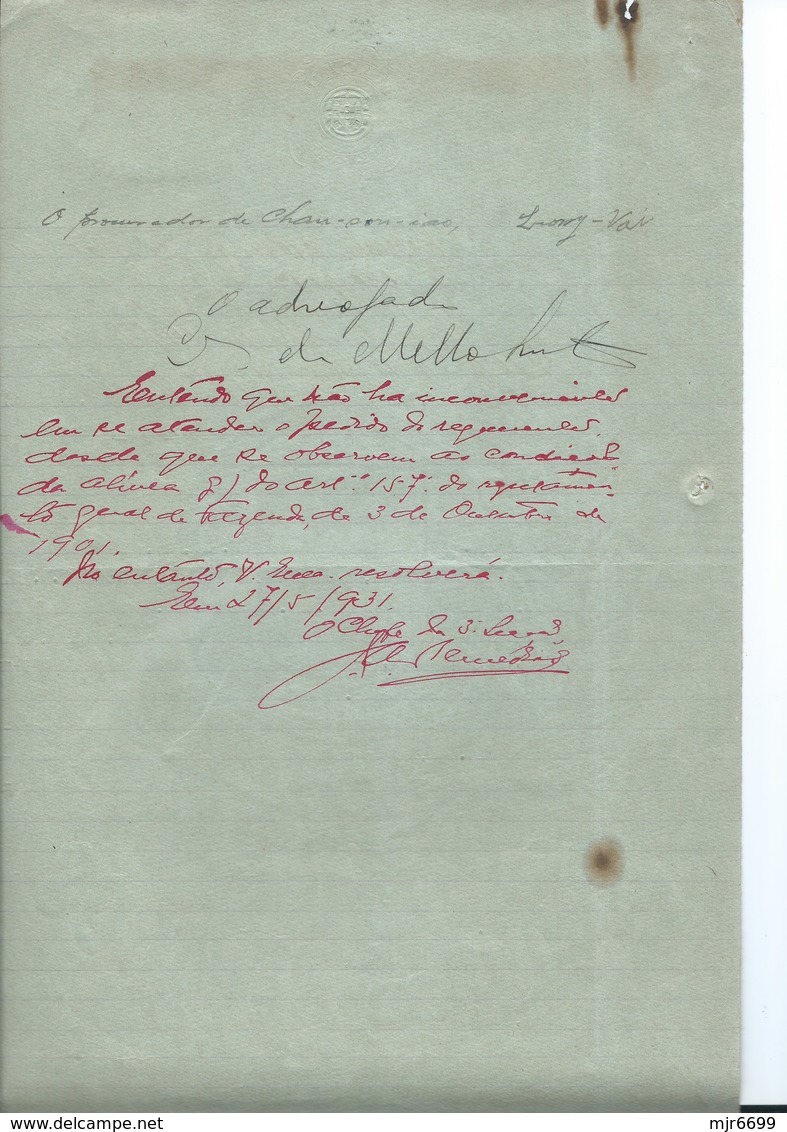 O procurador de Chan-son-iao, Leong-Vai
O advogado
de Mello
Entendo que não ha inconveniente
em se atender o pedido do requerente,
desde que se observem as condições
da alínea g) do artº 157º do regulamen-
to geral de fazenda, de 3 de Outubro de
1901.
No entanto, V. Exca. resolverá.
Em 27/5/931.
O Chefe da 3ª Secção,
delcampe.net
mjr6699